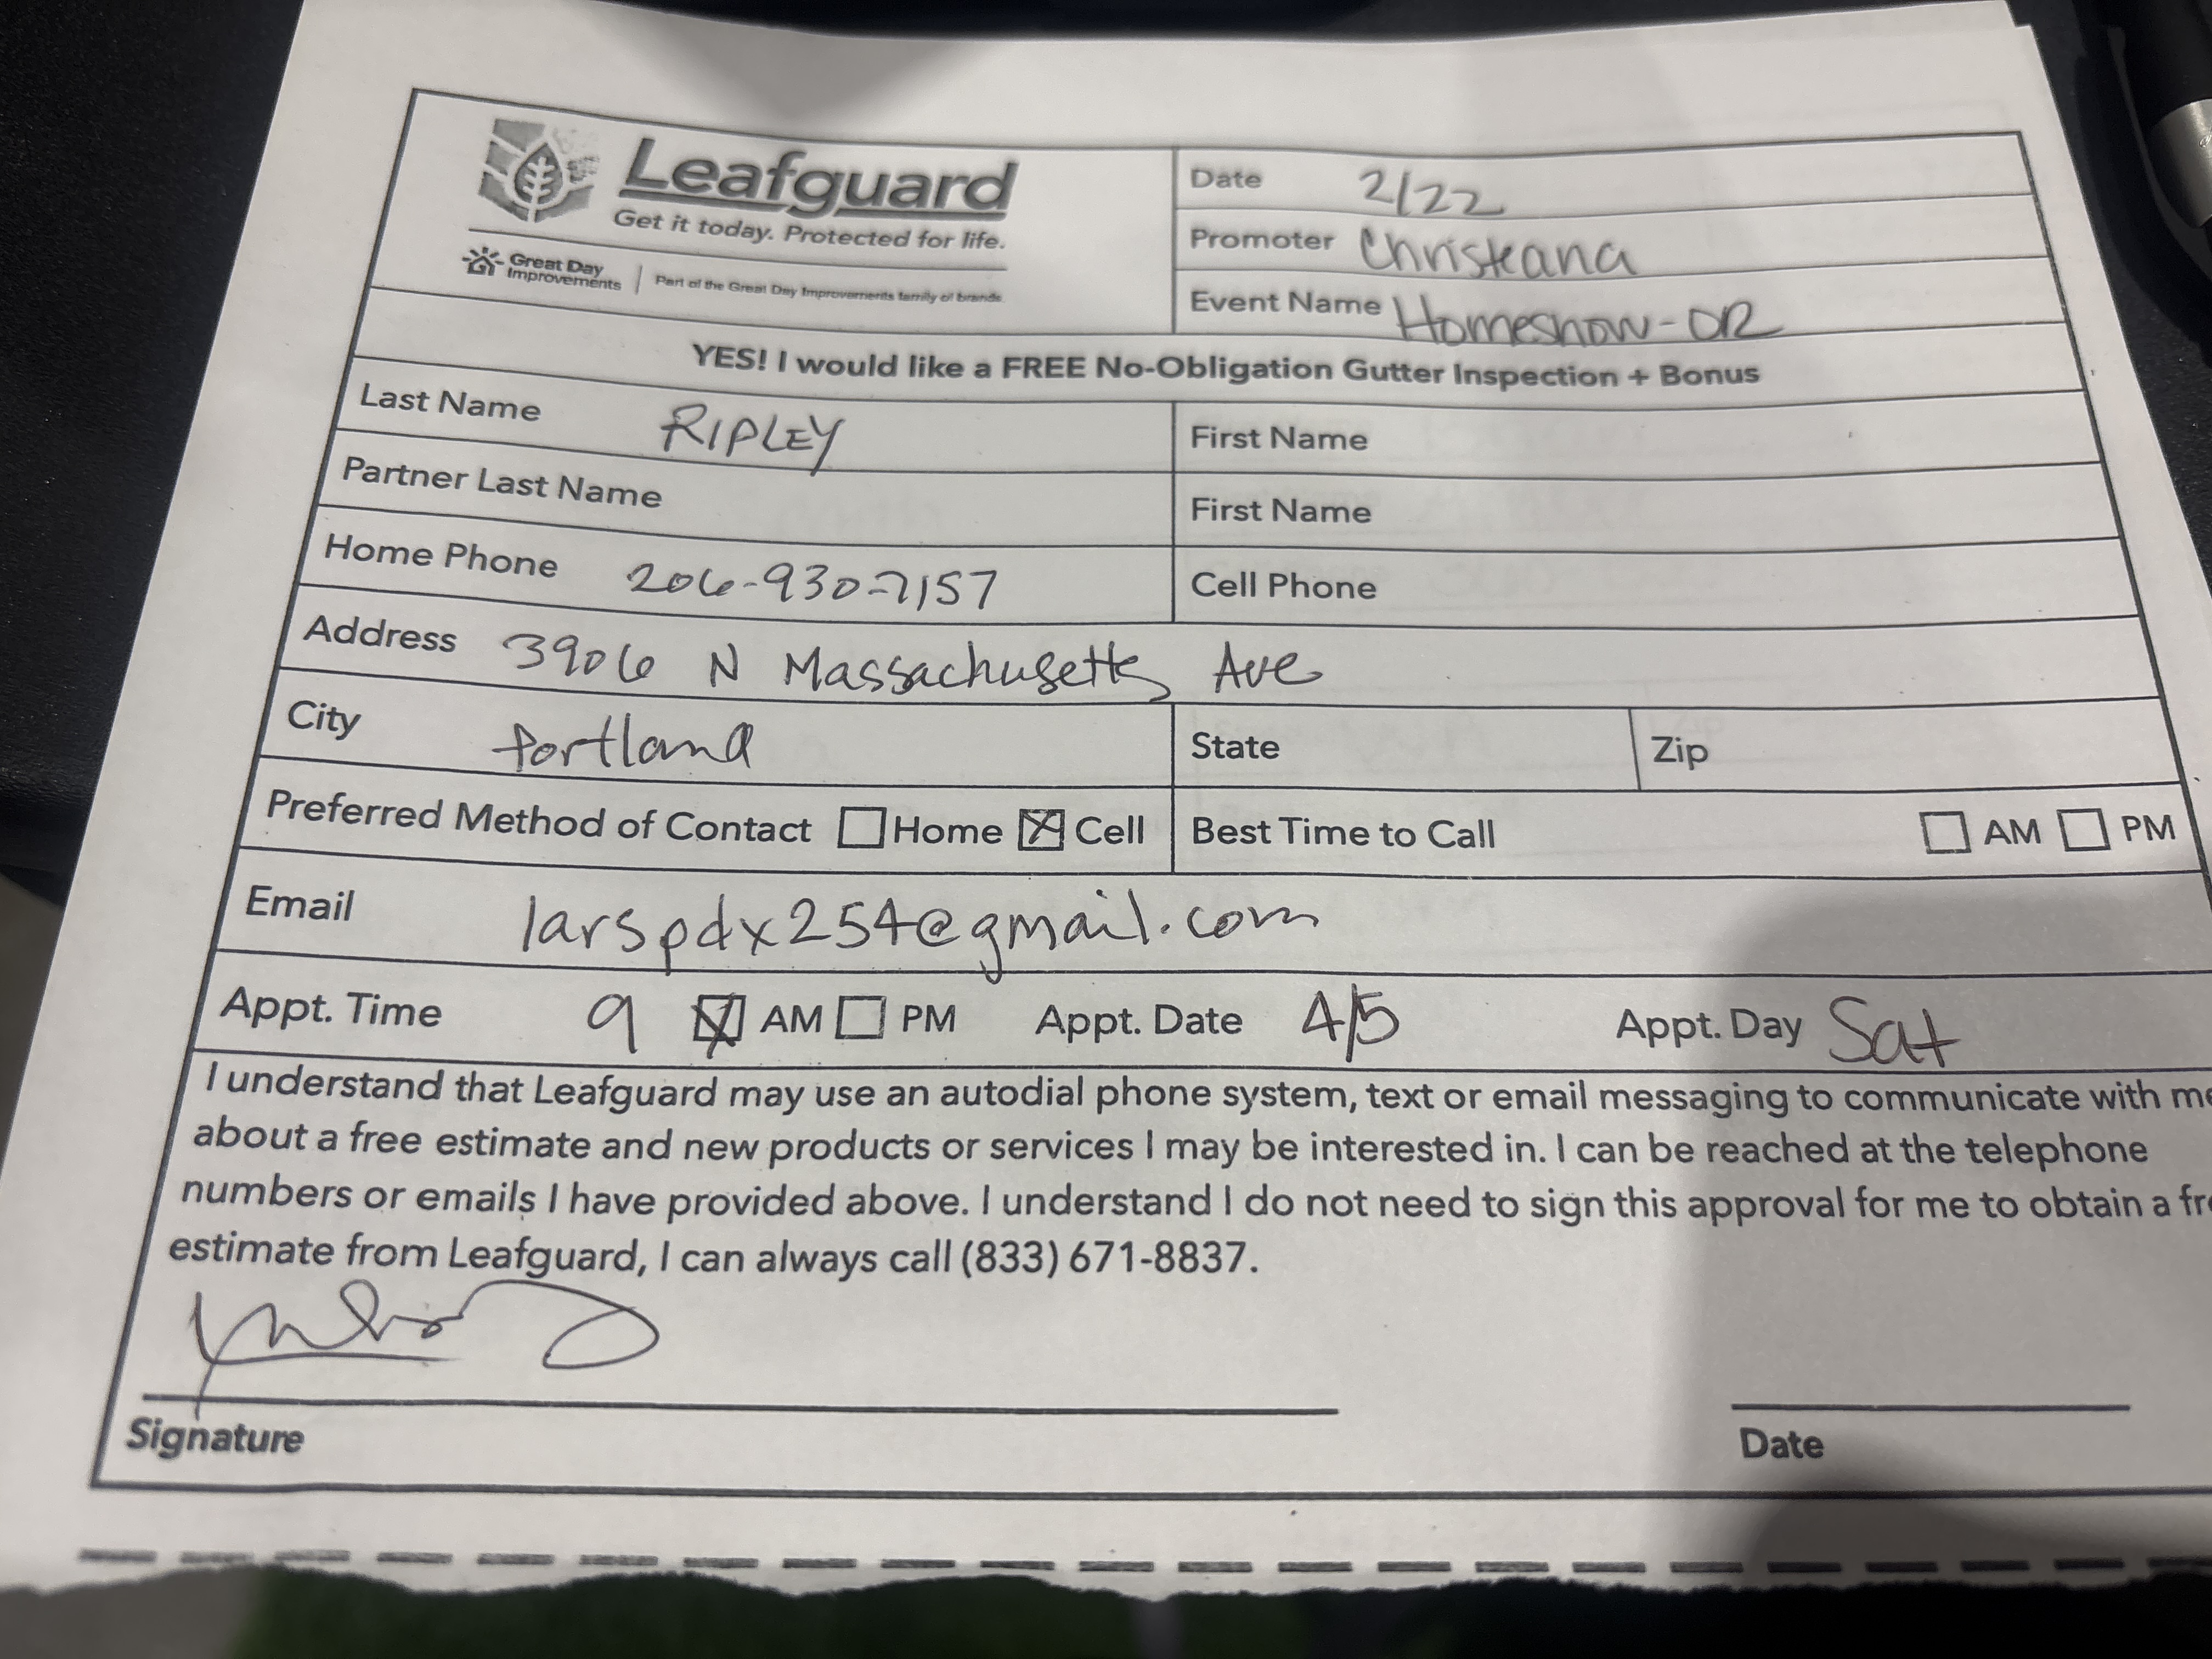 Leafguard
Get it today. Protected for life.
Great Day Improvements | Part of the Great Day Improvements family of brands
Date 2/22
Promoter Christeana
Event Name Homeshow-OR
YES! I would like a FREE No-Obligation Gutter Inspection + Bonus
Last Name RIPLEY First Name
Partner Last Name First Name
Home Phone 206-930-7157 Cell Phone
Address 3906 N Massachusetts Ave
City Portland State Zip
Preferred Method of Contact ☐ Home ☒ Cell Best Time to Call ☐ AM ☐ PM
Email larspdx254@gmail.com
Appt. Time 9 ☒ AM ☐ PM Appt. Date 4/5 Appt. Day Sat
I understand that Leafguard may use an autodial phone system, text or email messaging to communicate with me
about a free estimate and new products or services I may be interested in. I can be reached at the telephone
numbers or emails I have provided above. I understand I do not need to sign this approval for me to obtain a fr
estimate from Leafguard, I can always call (833) 671-8837.
Signature Date